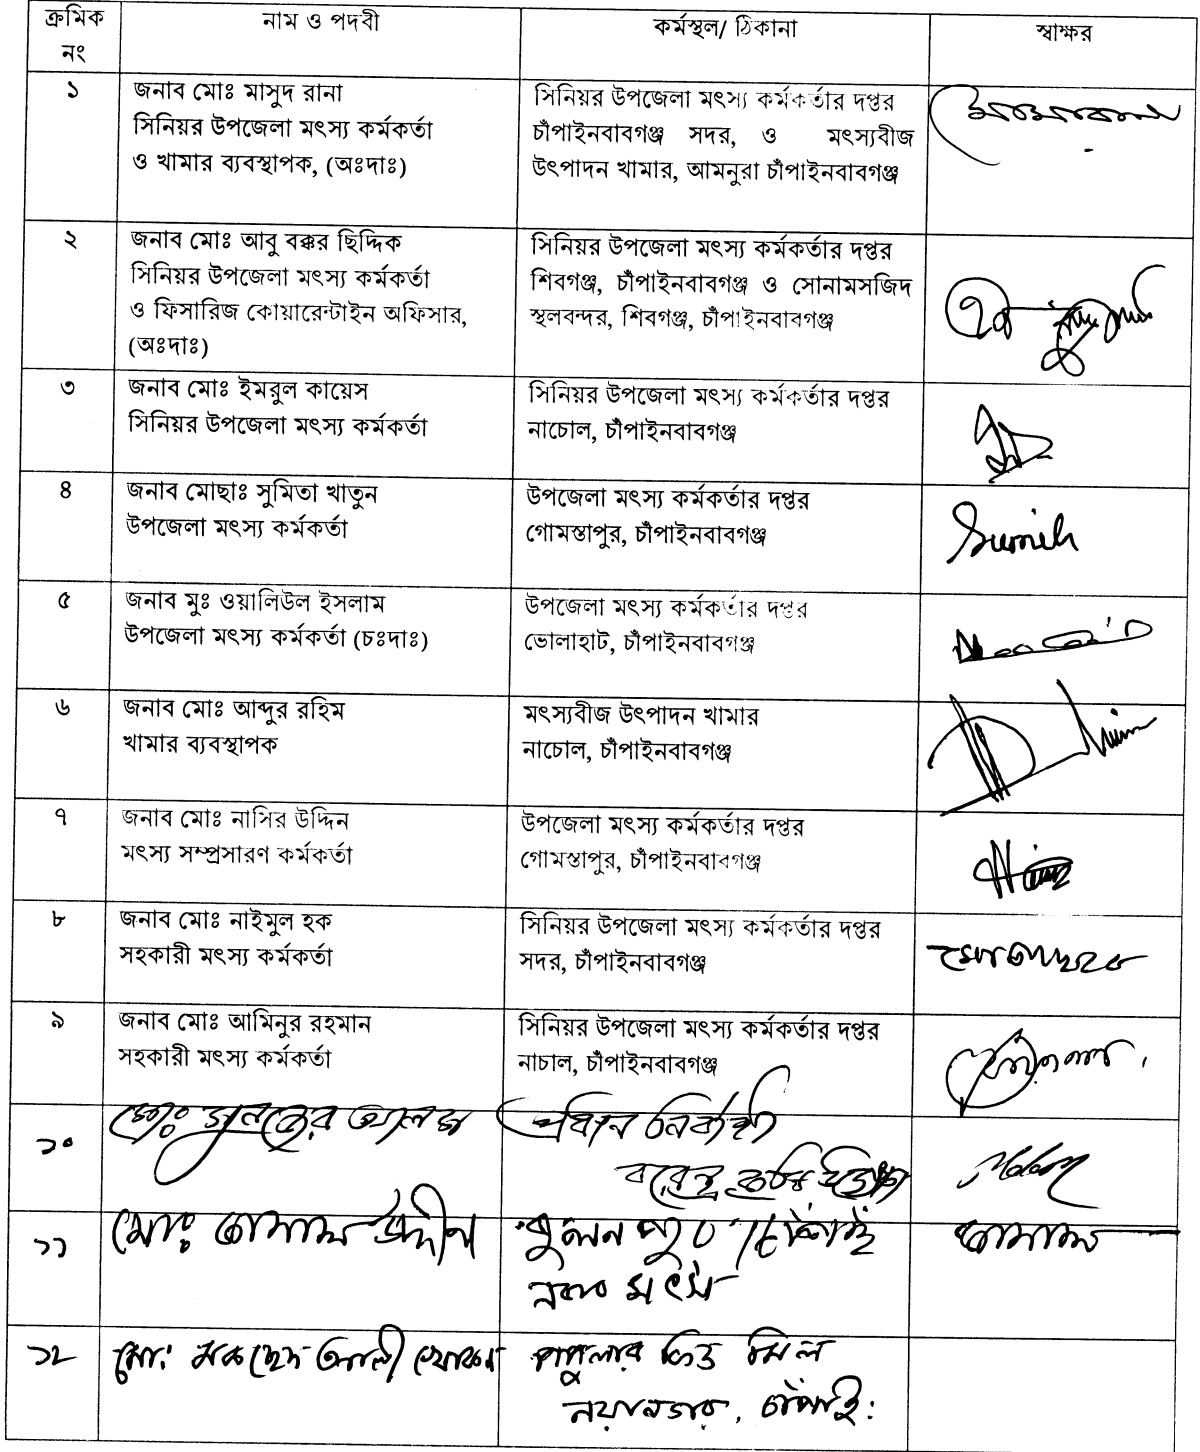 ক্রমিক নং নাম ও পদবী কর্মস্থল/ ঠিকানা স্বাক্ষর
১ জনাব মোঃ মাসুদ রানা
সিনিয়র উপজেলা মৎস্য কর্মকর্তা
ও খামার ব্যবস্থাপক, (অঃদাঃ)
সিনিয়র উপজেলা মৎস্য কর্মকর্তার দপ্তর
চাঁপাইনবাবগঞ্জ সদর, ও মৎস্যবীজ
উৎপাদন খামার, আমনুরা চাঁপাইনবাবগঞ্জ
২ জনাব মোঃ আবু বক্কর ছিদ্দিক
সিনিয়র উপজেলা মৎস্য কর্মকর্তা
ও ফিসারিজ কোয়ারেন্টাইন অফিসার,
(অঃদাঃ)
সিনিয়র উপজেলা মৎস্য কর্মকর্তার দপ্তর
শিবগঞ্জ, চাঁপাইনবাবগঞ্জ ও সোনামসজিদ
স্থলবন্দর, শিবগঞ্জ, চাঁপাইনবাবগঞ্জ
৩ জনাব মোঃ ইমরুল কায়েস
সিনিয়র উপজেলা মৎস্য কর্মকর্তা
সিনিয়র উপজেলা মৎস্য কর্মকর্তার দপ্তর
নাচোল, চাঁপাইনবাবগঞ্জ
৪ জনাব মোছাঃ সুমিতা খাতুন
উপজেলা মৎস্য কর্মকর্তা
উপজেলা মৎস্য কর্মকর্তার দপ্তর
গোমস্তাপুর, চাঁপাইনবাবগঞ্জ
৫ জনাব মুঃ ওয়ালিউল ইসলাম
উপজেলা মৎস্য কর্মকর্তা (চঃদাঃ)
উপজেলা মৎস্য কর্মকর্তার দপ্তর
ভোলাহাট, চাঁপাইনবাবগঞ্জ
৬ জনাব মোঃ আব্দুর রহিম
খামার ব্যবস্থাপক
মৎস্যবীজ উৎপাদন খামার
নাচোল, চাঁপাইনবাবগঞ্জ
৭ জনাব মোঃ নাসির উদ্দিন
মৎস্য সম্প্রসারণ কর্মকর্তা
উপজেলা মৎস্য কর্মকর্তার দপ্তর
গোমস্তাপুর, চাঁপাইনবাবগঞ্জ
৮ জনাব মোঃ নাইমুল হক
সহকারী মৎস্য কর্মকর্তা
সিনিয়র উপজেলা মৎস্য কর্মকর্তার দপ্তর
সদর, চাঁপাইনবাবগঞ্জ
৯ জনাব মোঃ আমিনুর রহমান
সহকারী মৎস্য কর্মকর্তা
সিনিয়র উপজেলা মৎস্য কর্মকর্তার দপ্তর
নাচাল, চাঁপাইনবাবগঞ্জ
১০ মোঃ আলম
প্রধান নির্বাহী
বরেন্দ্র কৃষি
১১ মোঃ কামাল উদ্দীন
কামাল
১২ মোঃ আলী
পপুলার ফিড মিল
নয়ানগর, চাঁপাই: